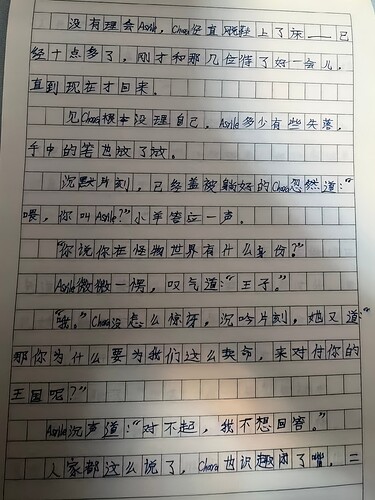 没有理会Asriel，Chara径直脱鞋上了床——已
经十点多了，刚才和那几位待了好一会儿，
直到现在才回来。
见Chara根本没理自己，Asriel多少有些失落，
手中的笔也放了放。
沉默片刻，已经盖被躺好的Chara忽然道：“
喂，你叫Asriel？”小羊答应一声。
“你说你在怪物世界有什么身份？”
Asriel微微一愣，叹气道：“王子。”
“哦。”Chara没怎么惊讶，沉吟片刻，她又道：“
那你为什么要为我们这么卖命，来对付你的
王国呢？”
Asriel沉声道：“对不起，我不想回答。”
人家都这么说了，Chara也识趣闭了嘴。二